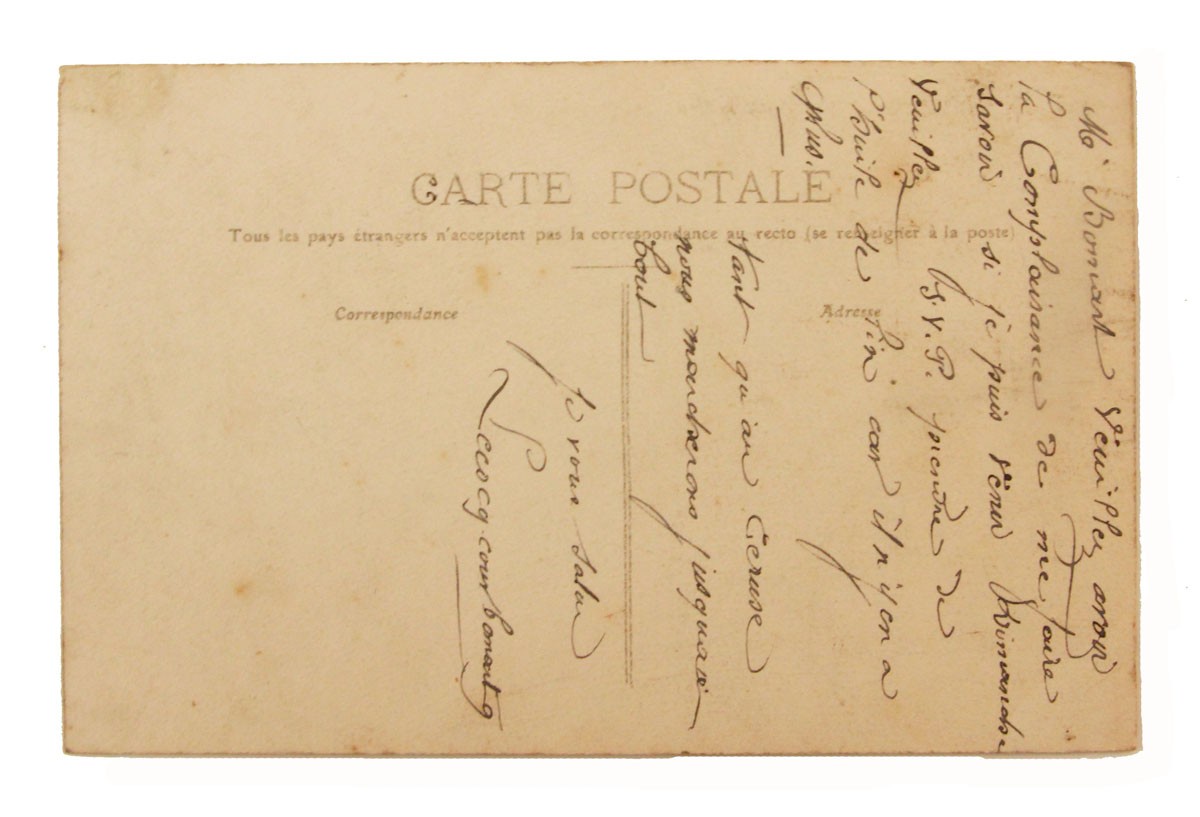 CARTE POSTALE
Tous les pays étrangers n'acceptent pas la correspondance au recto (se renseigner à la poste)
Correspondance
Adresse
Mr Bomart Veuillez avoir
la Complaisance de me faire
savoir si je puis venir Dimanche
Veuillez S.V.P. prendre de
l'huile de lin car il n'y en a
plus.
tant qu'au Ceruse
nous marcherons jusquau
bout
Je vous salue
Lecocq